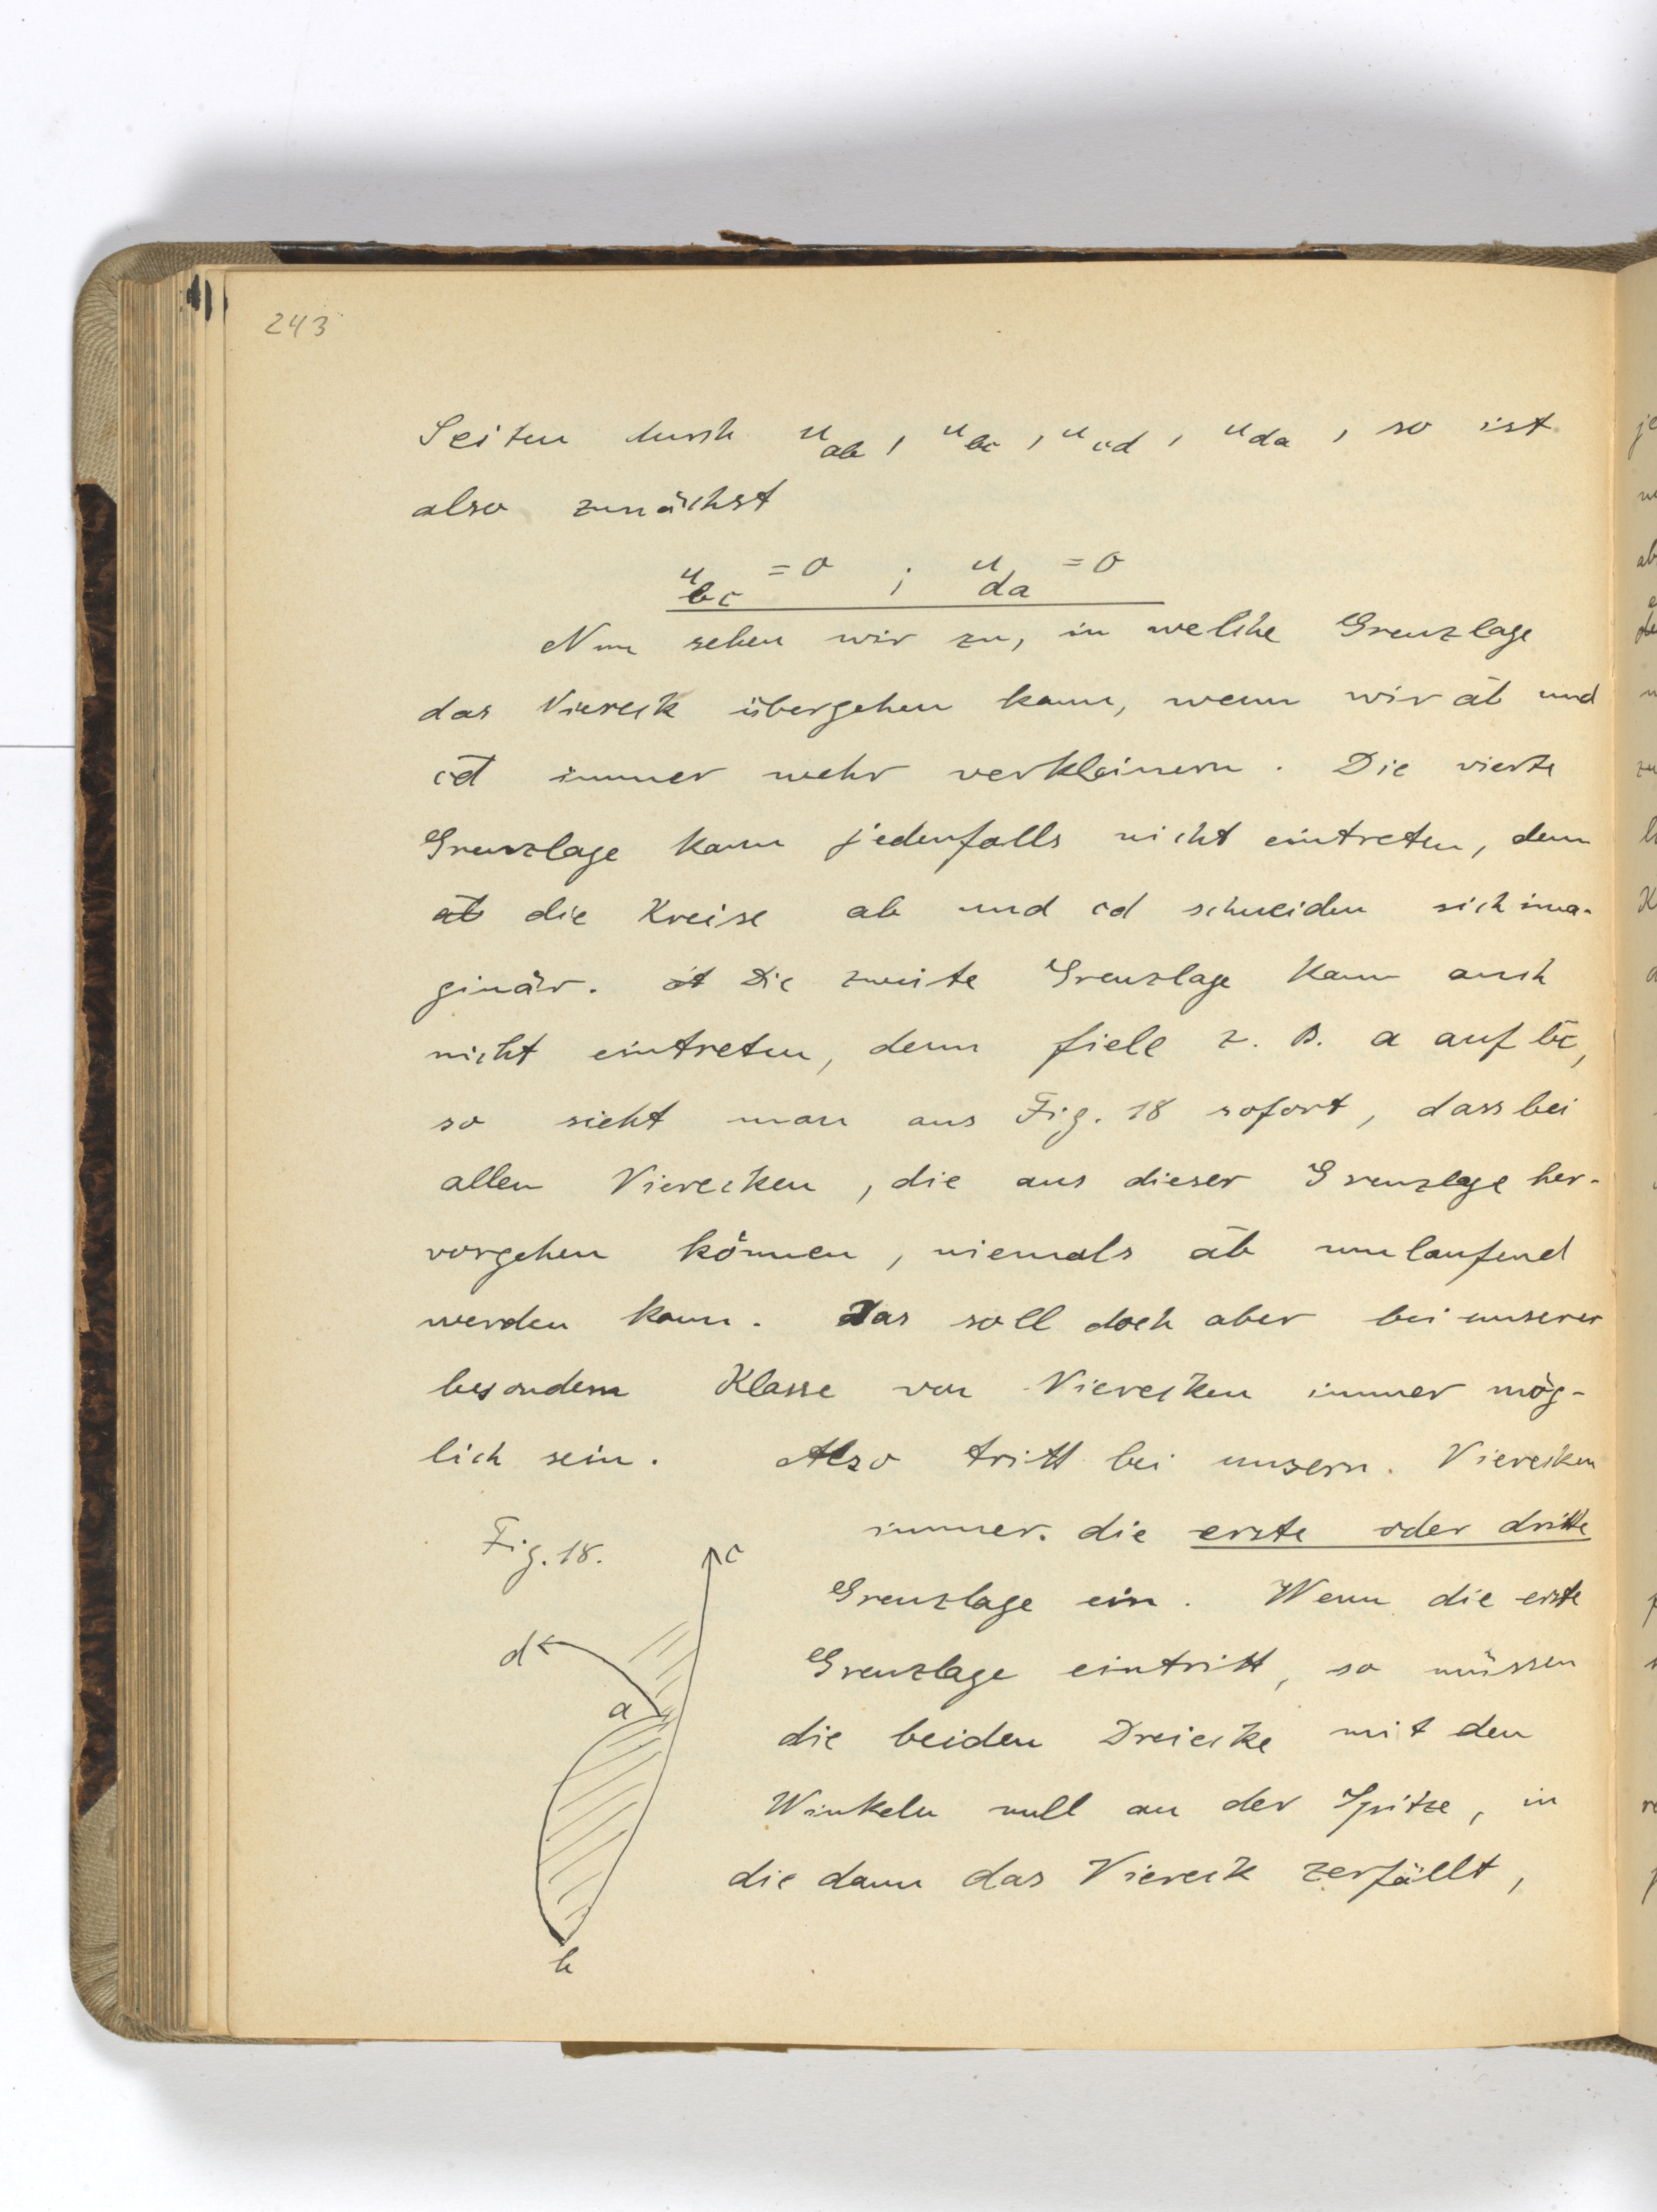 243
Seiten durch u_ab, u_bc, u_cd, u_da, so ist
also zunächst
u_bc = 0 ; u_da = 0
Nun sehen wir zu, in welche Grenzlage
das Viereck übergehen kann, wenn wir a̅b̅ und
c̅d̅ immer mehr verkleinern. Die vierte
Grenzlage kann jedenfalls nicht eintreten, denn
die Kreise ab und cd schneiden sich ima-
ginär. Die zweite Grenzlage kann auch
nicht eintreten, denn fiele z. B. a auf b̅c̅,
so sieht man aus Fig. 18 sofort, dass bei
allen Vierecken, die aus dieser Grenzlage her-
vorgehen können, niemals a̅b̅ umlaufend
werden kann. Das soll doch aber bei unserer
besondern Klasse von Vierecken immer mög-
lich sein. Also tritt bei unsern Vierecken
immer die erste oder dritte
Grenzlage ein. Wenn die erste
Grenzlage eintritt, so müssen
die beiden Dreiecke mit den
Winkeln null an der Spitze, in
die dann das Viereck zerfällt,
Fig. 18.
c
d
a
b